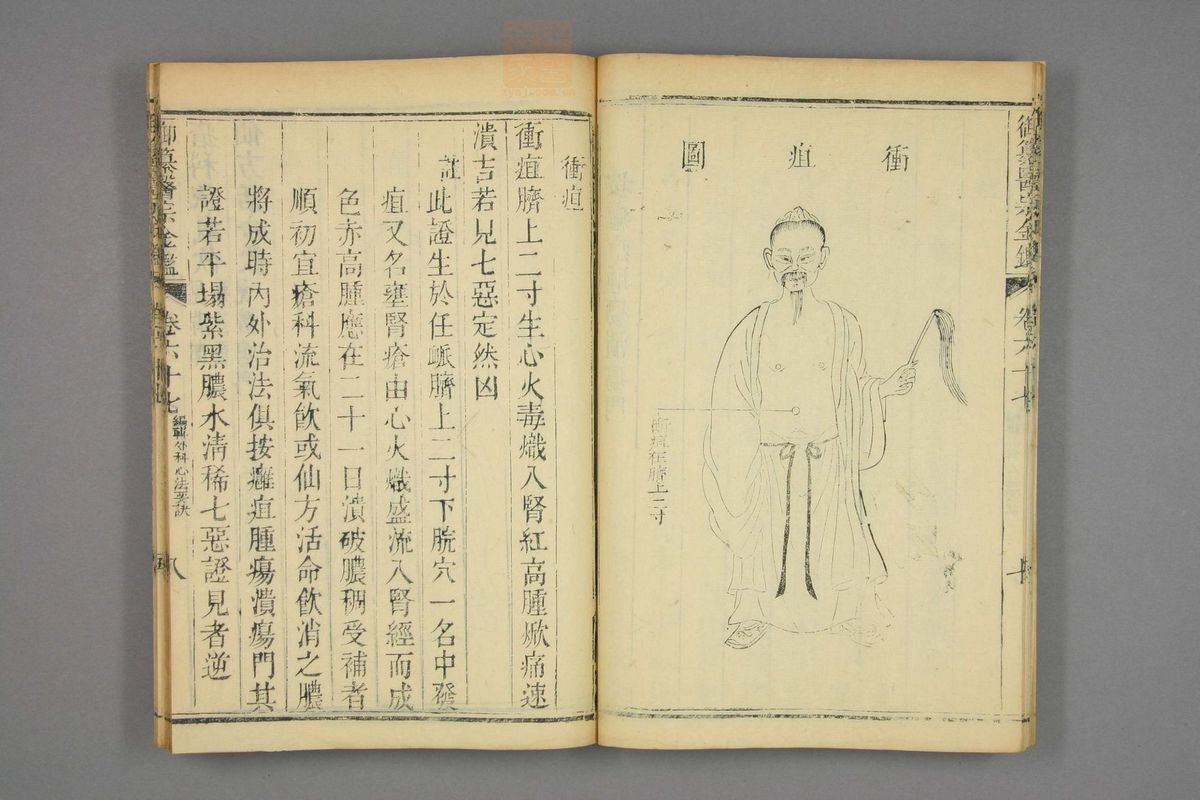 御纂醫宗金鑑
卷六十七
衝疽圖
衝疽在臍上二寸
衝疽
衝疽臍上二寸生心火毒熾入腎紅高腫焮痛速
潰吉若見七惡定然凶
註此證生於任脈臍上二寸下脘穴一名中發
疽又名壅腎瘡由心火熾盛流入腎經而成
色赤高腫應在二十一日潰破膿稠受補者
順初宜瘡科流氣飲或仙方活命飲消之膿
將成時內外治法俱按癰疽腫瘍潰瘍門其
證若平塌紫黑膿水清稀七惡證見者逆
御纂醫宗金鑑
卷六十七
編輯外科心法要訣
八